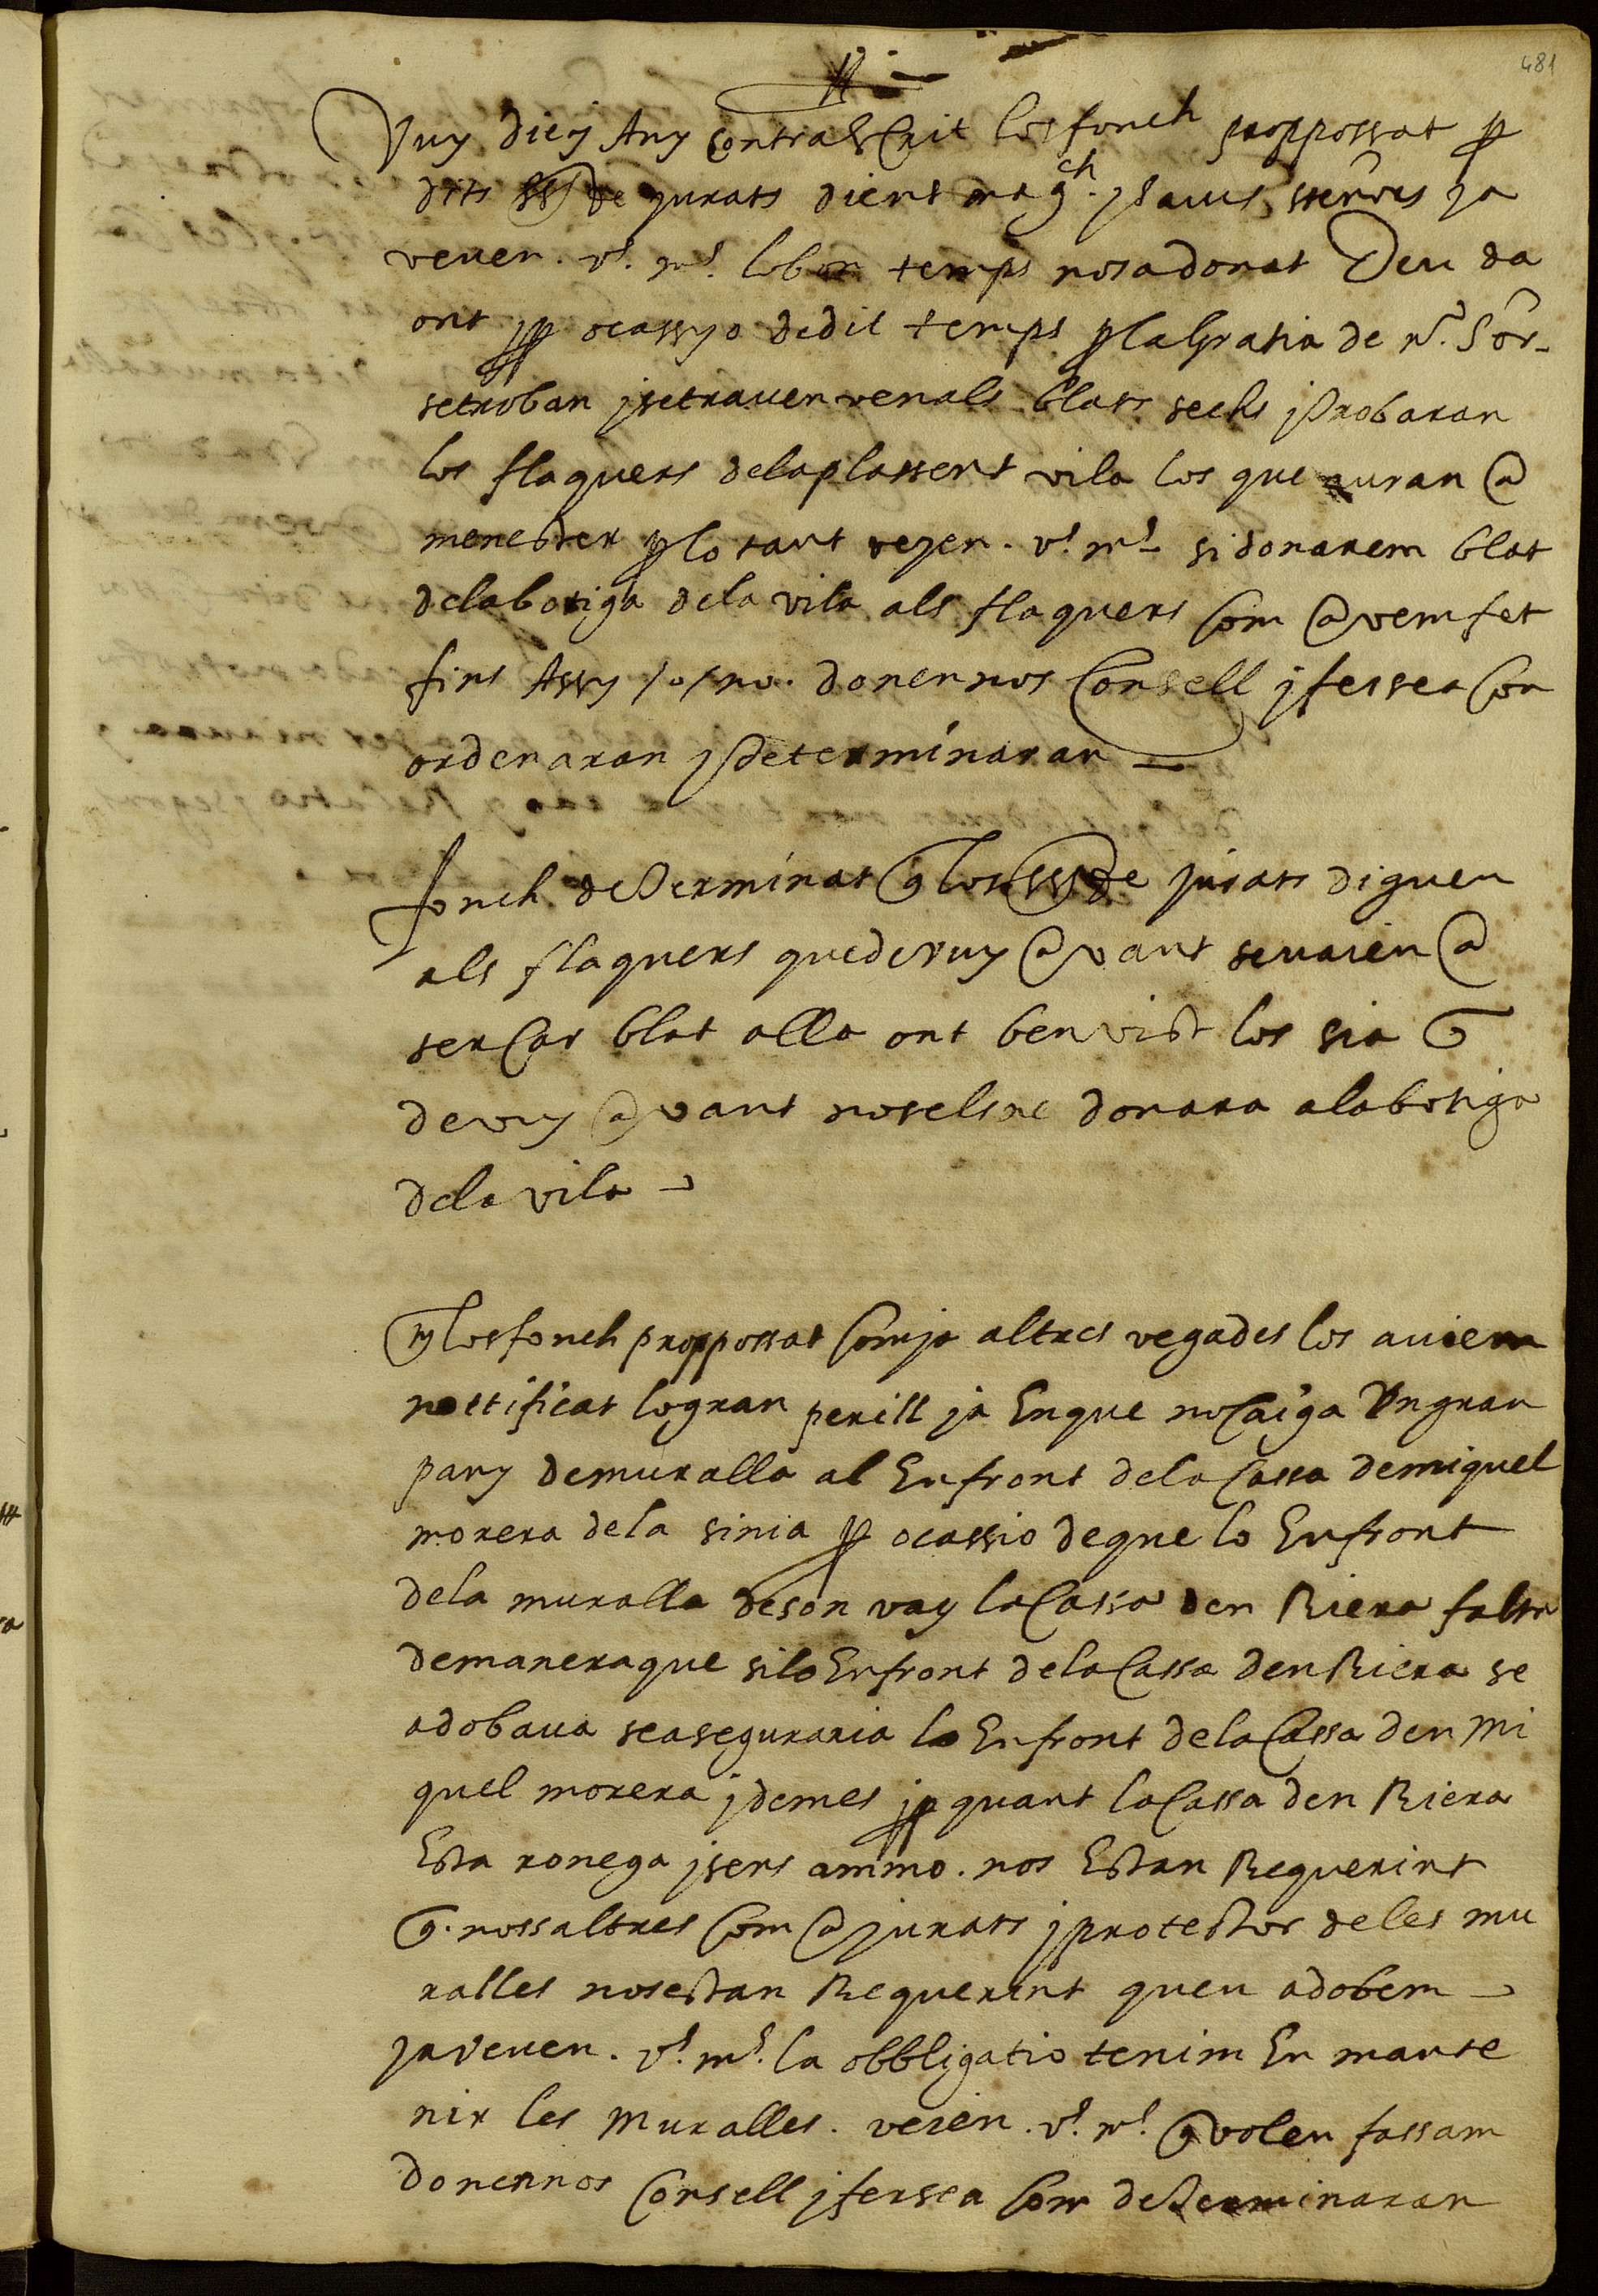 481
Vuy die y Any contrascrit los fonch proppossat p
dits ss de jurats dient magch. y savis sseñors ja
veuen. vs. ms. lo bon temps nosa donat Deu da
ont y p ocassyo de dit temps p la gratia de nr. Sor.
se troban y se trauen venals blats sechs y trobaran
los flaquers de la plassent vila los que auran a
menester p lo tant vejen. vs. ms. si donarem blat
de la botiga de la vila als flaquers com avem fet
fins Assy /o/ no. donen nos Consell y fersea con
ordenaran y determinaran
Fonch determinat q los ss de jurats diguen
als flaquers que de vuy avant se vaien a
sercar blat alla ont ben vist los sia q
de vuy avant nosels ne donara a la botiga
de la vila
Mes los fonch proppossat com ja altres vegades los aviem
nottificat lo gran perill ja En que no Caiga Un gran
pany de muralla al Enfront de la Cassa de miquel
morera de la sinia p ocassio de que lo Enfront
de la muralla deson vay la Cassa den Riera falta
de manera que si lo Enfront de la Cassa den Riera se
adobava se aseguraria lo Enfront de la Cassa den Mi
quel morera y demes y p quant la Cassa den Riera
Esta ronega y sens ammo. nos Estan Requerint
q. nossaltres Com a jurats y protector de les mu
ralles nos estan Requerint queu adobem
ja veuen. vs. ms. la obbligatio tenim En mante
nir les Muralles. vejen. vs. ms. q volen fassam
donen nos Consell y fersea Com determinaran